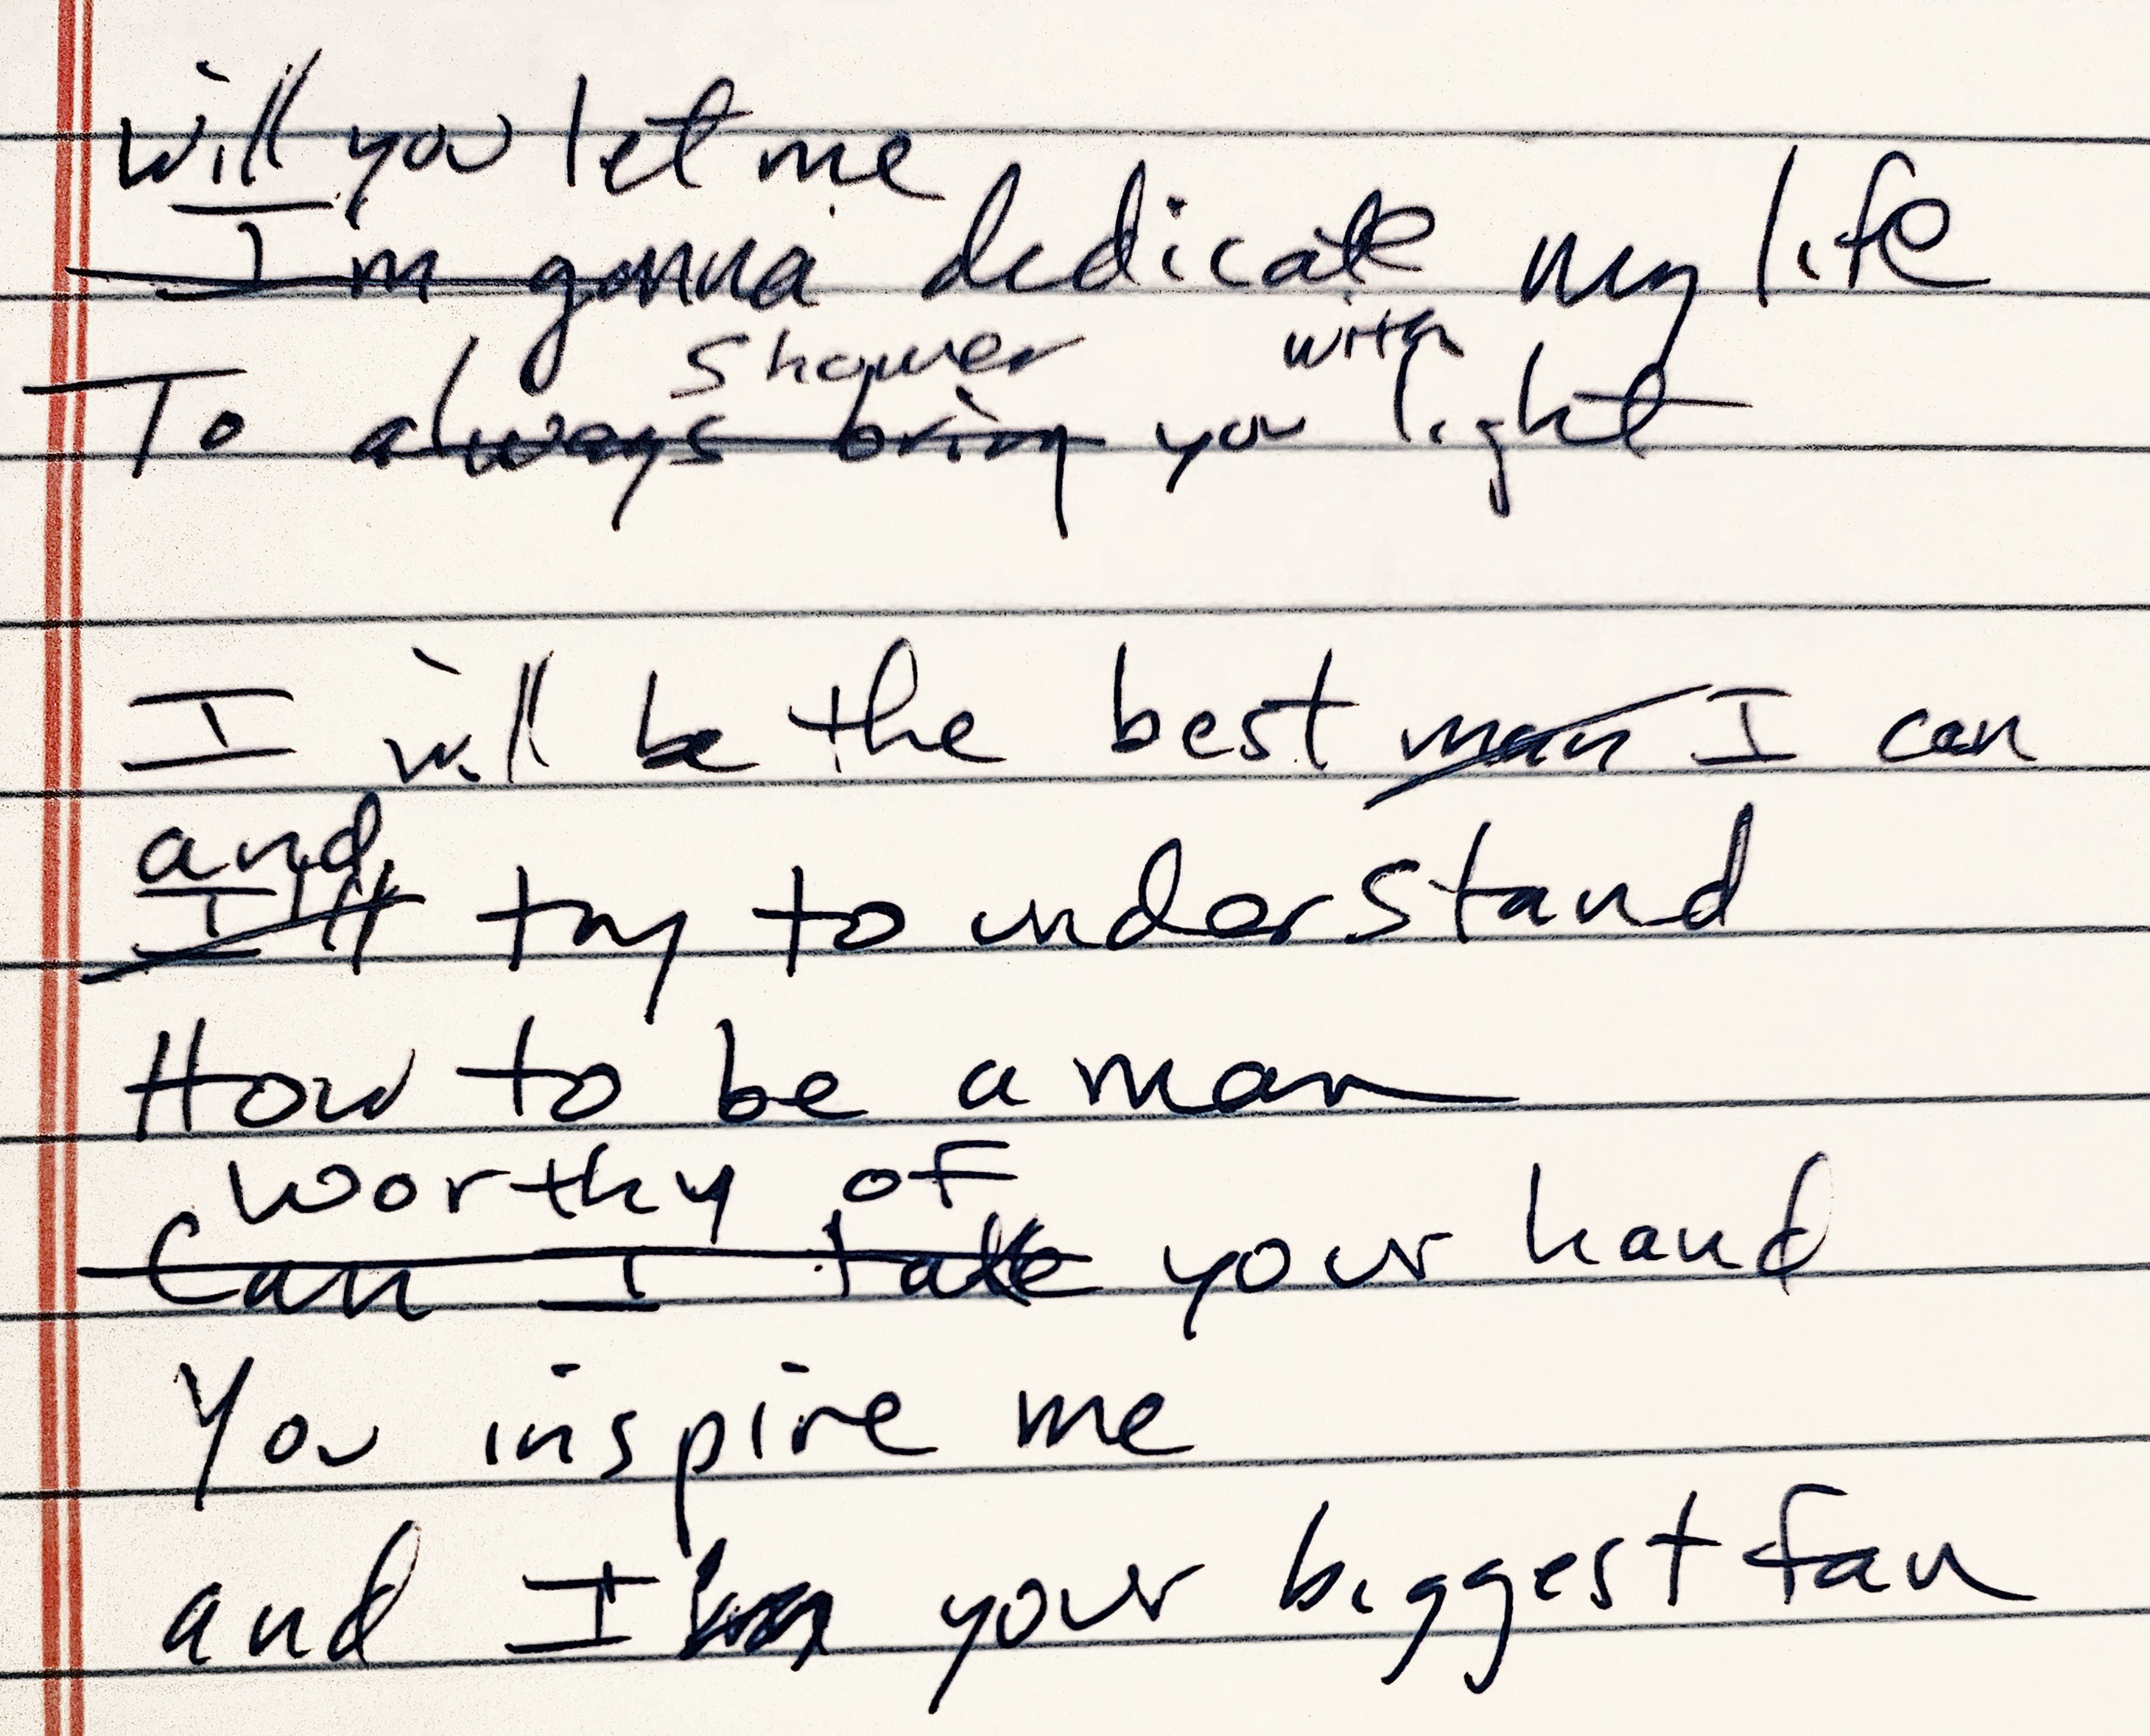 Will you let me
I'm gonna dedicate my life
shower with
To always bring you light
I will be the best man I can
and
I'll try to understand
How to be a man
worthy of
Can I take your hand
You inspire me
and I'm your biggest fan